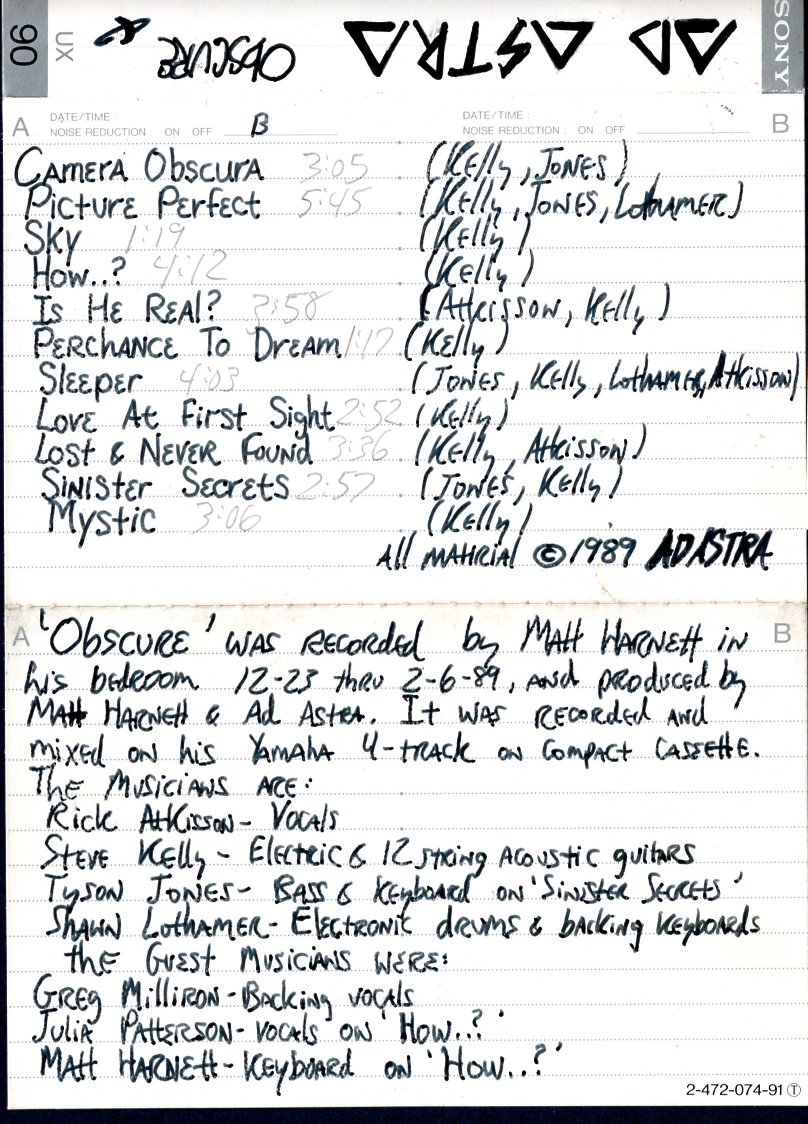 90 UX OBSCURE AD ASTRA SONY
A DATE/TIME : DATE/TIME : B
NOISE REDUCTION : ON OFF B NOISE REDUCTION : ON OFF
Camera Obscura 3:05 (Kelly, Jones)
Picture Perfect 5:45 (Kelly, Jones, Lothamer)
Sky 1:19 (Kelly)
How..? 4:12 (Kelly)
Is He Real? 3:58 (Atkisson, Kelly)
Perchance To Dream 1:17 (Kelly)
Sleeper 4:03 (Jones, Kelly, Lothamer, Atkisson)
Love At First Sight 2:52 (Kelly)
Lost & Never Found 3:36 (Kelly, Atkisson)
Sinister Secrets 2:57 (Jones, Kelly)
Mystic 3:06 (Kelly)
All matirial © 1989 AD ASTRA
A B
'Obscure' was recorded by Matt Harnett in
his bedroom 12-23 thru 2-6-89, and produced by
Matt Harnett & Ad Astra. It was recorded and
mixed on his Yamaha 4-track on compact cassette.
The Musicians are:
Rick Atkisson - Vocals
Steve Kelly - Electric & 12 string acoustic guitars
Tyson Jones - Bass & Keyboard on 'Sinister Secrets'
Shawn Lothamer - Electronic drums & backing keyboards
the Guest Musicians were:
Greg Milliron - Backing vocals
Julia Patterson - vocals on 'How..?'
Matt Harnett - Keyboard on 'How..?'
2-472-074-91 T